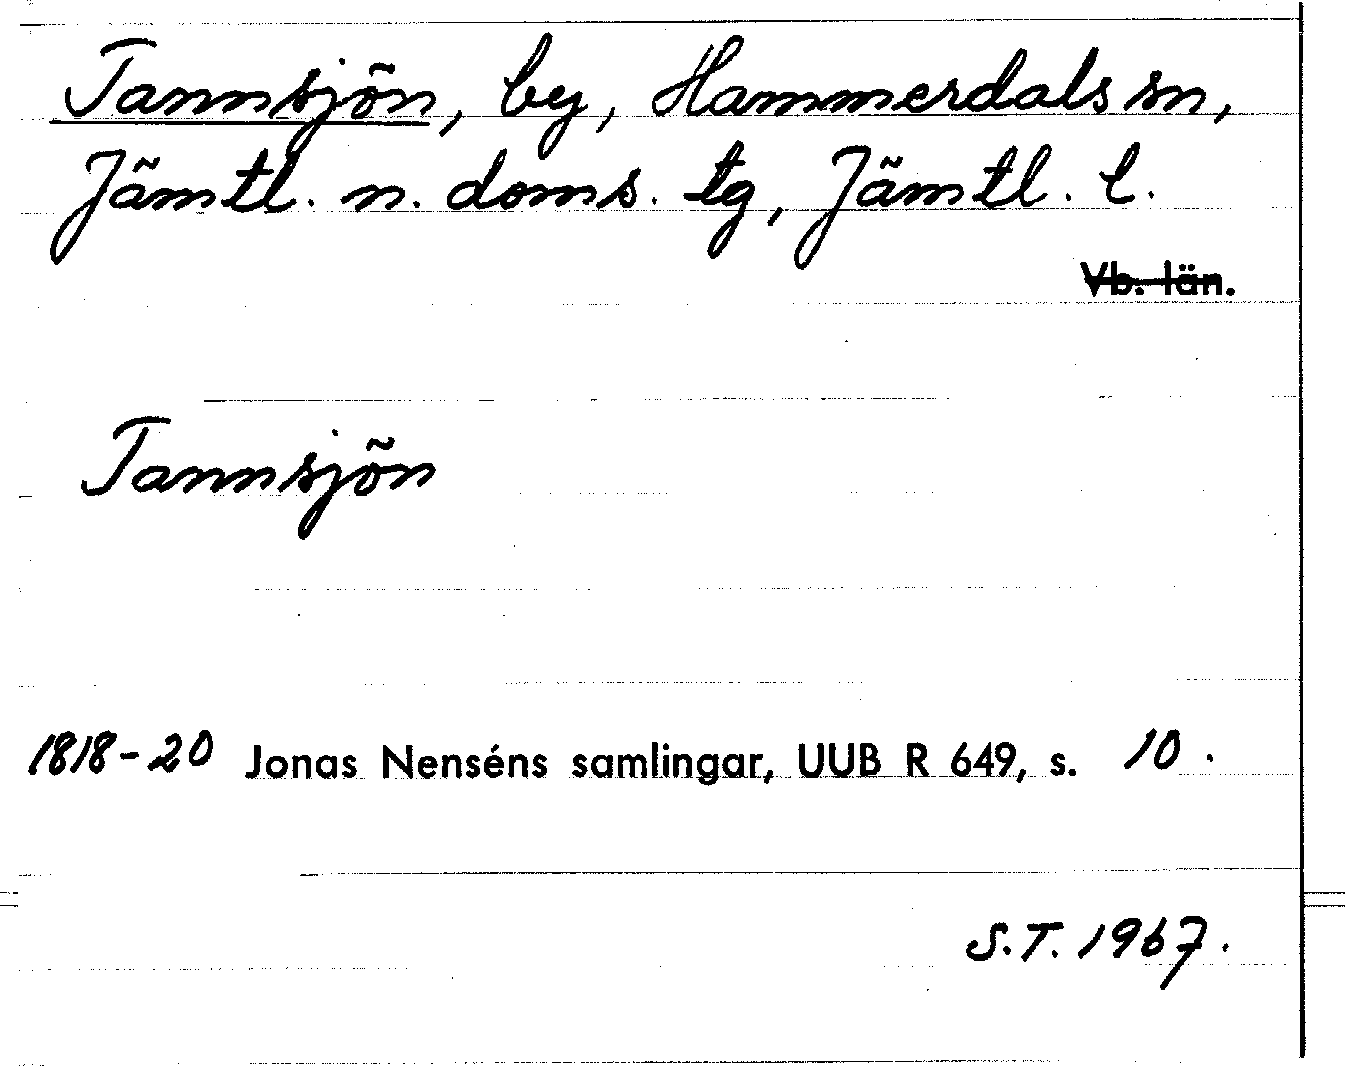 Tannsjön, by, Hammerdals sn,
Jämtl. n. doms. tg, Jämtl. l.
Vb. län.
Tannsjön
1818-20 Jonas Nenséns samlingar, UUB R 649, s. 10.
S.T. 1967.